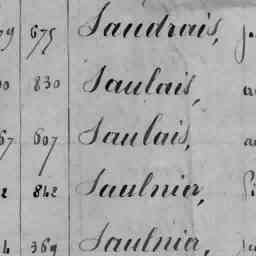 79 675 Saudrais,
830 Saulais,
67 607 Saulais,
2 842 Saulnier,
4 369 Saulnier,